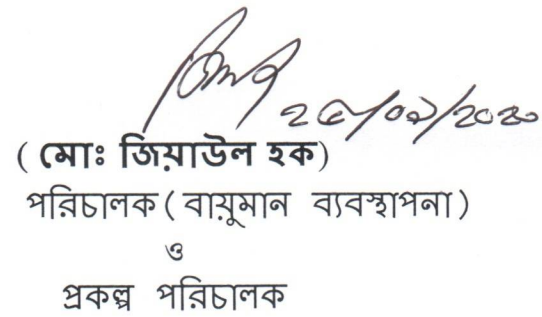 (মোঃ জিয়াউল হক)
পরিচালক (বায়ুমান ব্যবস্থাপনা)
ও
প্রকল্প পরিচালক